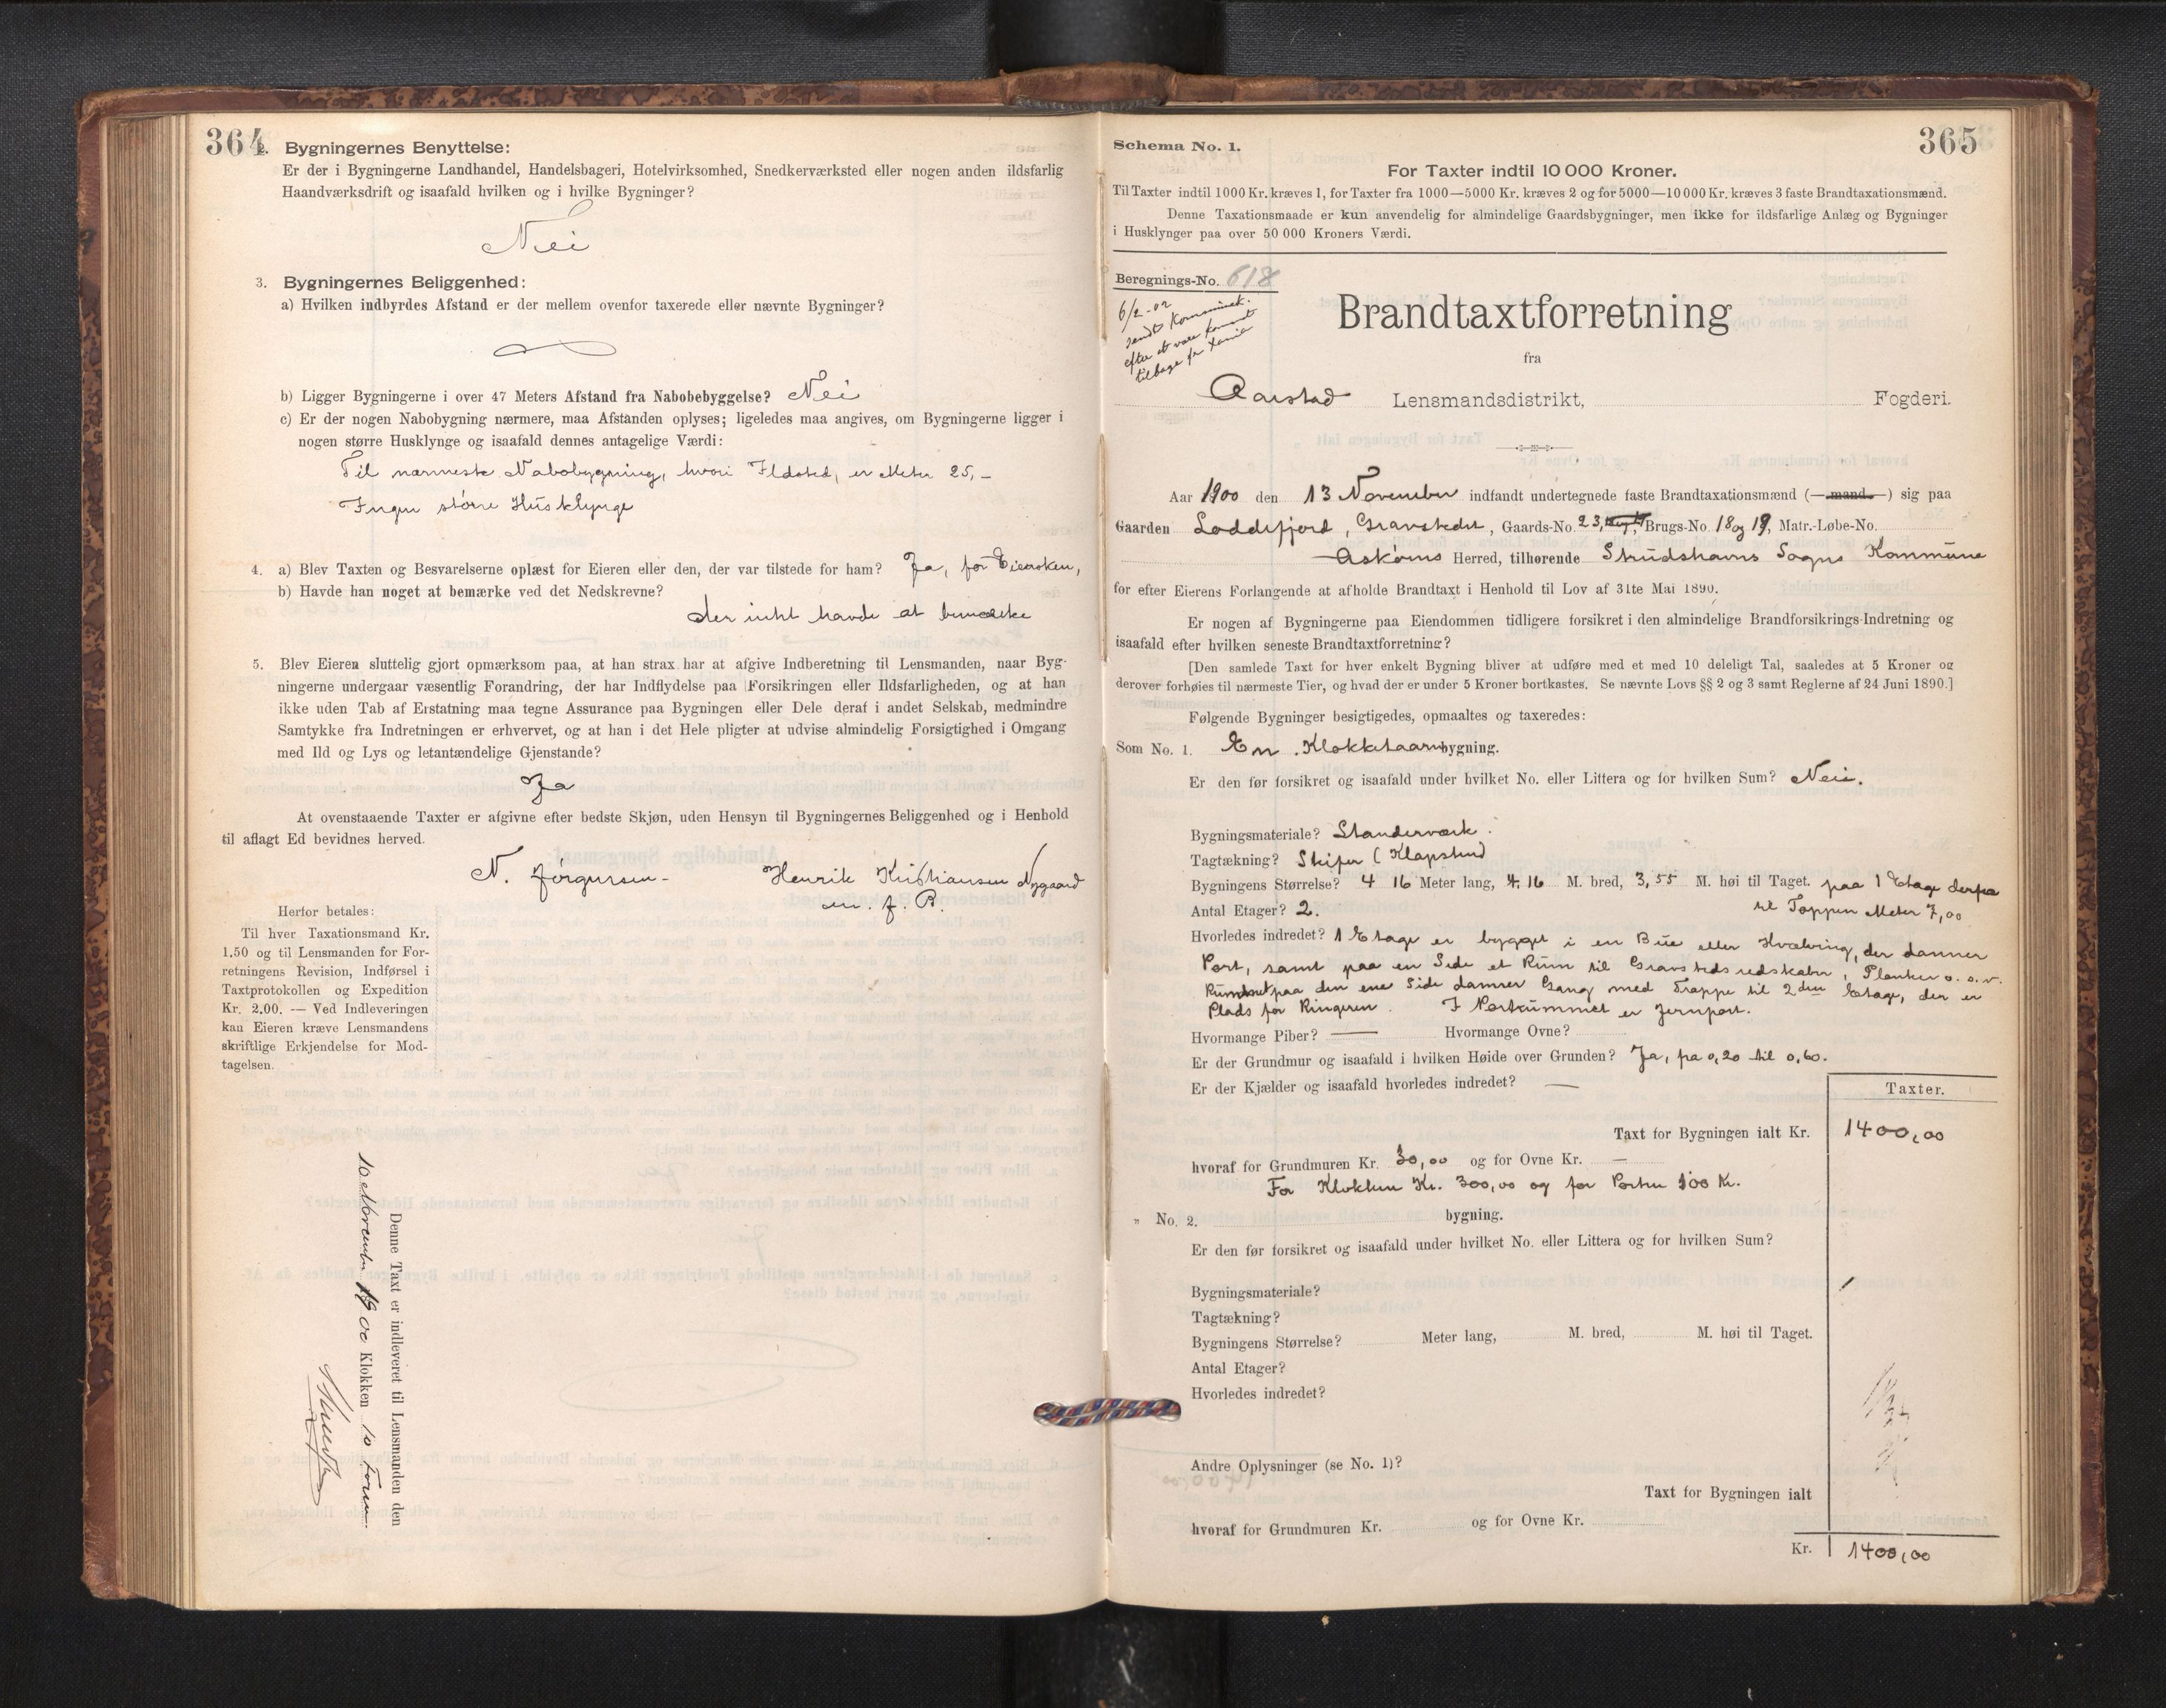 364
2. Bygningernes Benyttelse:
Er der i Bygningerne Landhandel, Handelsbageri, Hotelvirksomhed, Snedkerværksted eller nogen anden ildsfarlig
Haandværksdrift og isaafald hvilken og i hvilke Bygninger?
Nei
3. Bygningernes Beliggenhed:
a) Hvilken indbyrdes Afstand er der mellem ovenfor taxerede eller nævnte Bygninger?
b) Ligger Bygningerne i over 47 Meters Afstand fra Nabobebyggelse? Nei
c) Er der nogen Nabobygning nærmere, maa Afstanden oplyses; ligeledes maa angives, om Bygningerne ligger i
nogen større Husklynge og isaafald dennes antagelige Værdi:
Til nærmeste Nabobygning, hvori Ildsted, er Meter 25,-
Ingen större Husklynge
4. a) Blev Taxten og Besvarelserne oplæst for Eieren eller den, der var tilstede for ham? Ja, for Eiersken,
b) Havde han noget at bemærke ved det Nedskrevne?
der intet havde at bemærke
5. Blev Eieren sluttelig gjort opmærksom paa, at han strax har at afgive Indberetning til Lensmanden, naar Byg-
ningerne undergaar væsentlig Forandring, der har Indflydelse paa Forsikringen eller Ildsfarligheden, og at han
ikke uden Tab af Erstatning maa tegne Assurance paa Bygningen eller Dele deraf i andet Selskab, medmindre
Samtykke fra Indretningen er erhvervet, og at han i det Hele pligter at udvise almindelig Forsigtighed i Omgang
med Ild og Lys og letantændelige Gjenstande?
Ja
At ovenstaaende Taxter er afgivne efter bedste Skjøn, uden Hensyn til Bygningernes Beliggenhed og i Henhold
til aflagt Ed bevidnes herved.
N. Jörgensen- Henrik Kristiansen Nygaard
m. f. P.
Herfor betales:
Til hver Taxationsmand Kr.
1.50 og til Lensmanden for For-
retningens Revision, Indførsel i
Taxtprotokollen og Expedition
Kr. 2.00. — Ved Indleveringen
kan Eieren kræve Lensmandens
skriftlige Erkjendelse for Mod-
tagelsen.
Denne Taxt er indleveret til Lensmanden den
10 November 1900 Klokken 10 Form.
365
Schema No. 1.
For Taxter indtil 10 000 Kroner.
Til Taxter indtil 1000 Kr. kræves 1, for Taxter fra 1000—5000 Kr. kræves 2 og for 5000—10 000 Kr. kræves 3 faste Brandtaxationsmænd.
Denne Taxationsmaade er kun anvendelig for almindelige Gaardsbygninger, men ikke for ildsfarlige Anlæg og Bygninger
i Husklynger paa over 50 000 Kroners Værdi.
Beregnings-No. 618
6/2-02
sendt Komminet.
efter at være kommet
tilbage fr Xania
Brandtaxtforretning
fra
Aarstad Lensmandsdistrikt, Fogderi.
Aar 1900 den 13 November indfandt undertegnede faste Brandtaxationsmænd (—mand—) sig paa
Gaarden Loddefjord, Gravstedet, Gaards-No. 23, Brugs-No. 18 og 19, Matr.-Løbe-No.
Askøens Herred, tilhørende Strudshavns Sogns Kommune
for efter Eierens Forlangende at afholde Brandtaxt i Henhold til Lov af 31te Mai 1890.
Er nogen af Bygningerne paa Eiendommen tidligere forsikret i den almindelige Brandforsikrings-Indretning og
isaafald efter hvilken seneste Brandtaxtforretning?
[Den samlede Taxt for hver enkelt Bygning bliver at udføre med et med 10 deleligt Tal, saaledes at 5 Kroner og
derover forhøies til nærmeste Tier, og hvad der er under 5 Kroner bortkastes. Se nævnte Lovs §§ 2 og 3 samt Reglerne af 24 Juni 1890.]
Følgende Bygninger besigtigedes, opmaaltes og taxeredes:
Som No. 1. En Klokketaarnbygning.
Er den før forsikret og isaafald under hvilket No. eller Littera og for hvilken Sum? Nei.
Bygningsmateriale? Standerværk.
Tagtækning? Skifer (Klapsten)
Bygningens Størrelse? 4 16 Meter lang, 4.16 M. bred, 3,55 M. høi til Taget. paa 1 Etage derfra
til Toppen Meter 7,00
Antal Etager? 2.
Hvorledes indredet? 1 Etage er bygget i en Bue eller Hvælving, der danner
Port, samt paa en Side et Rum til Gravstedsredskaber, Planker o. s. v.
Rummet paa den ene Side danner Gang med Trappe til 2den Etage, der er
Plads for Ringeren. I Portrummet er Jernport.
Hvormange Piber? — Hvormange Ovne?
Er der Grundmur og isaafald i hvilken Høide over Grunden? Ja, fra 0,20 til 0,60.
Er der Kjælder og isaafald hvorledes indredet? —
Taxter.
Taxt for Bygningen ialt Kr. 1400,00
hvoraf for Grundmuren Kr. 30,00 og for Ovne Kr. —
For Klokken Kr. 300,00 og for Porten 100 Kr.
" No. 2. bygning.
Er den før forsikret og isaafald under hvilket No. eller Littera og for hvilken Sum?
Bygningsmateriale?
Tagtækning?
Bygningens Størrelse? Meter lang, M. bred, M. høi til Taget.
Antal Etager?
Hvorledes indredet?
Andre Oplysninger (se No. 1)?
Taxt for Bygningen ialt
hvoraf for Grundmuren Kr. og for Ovne Kr.
Kr. 1400,00